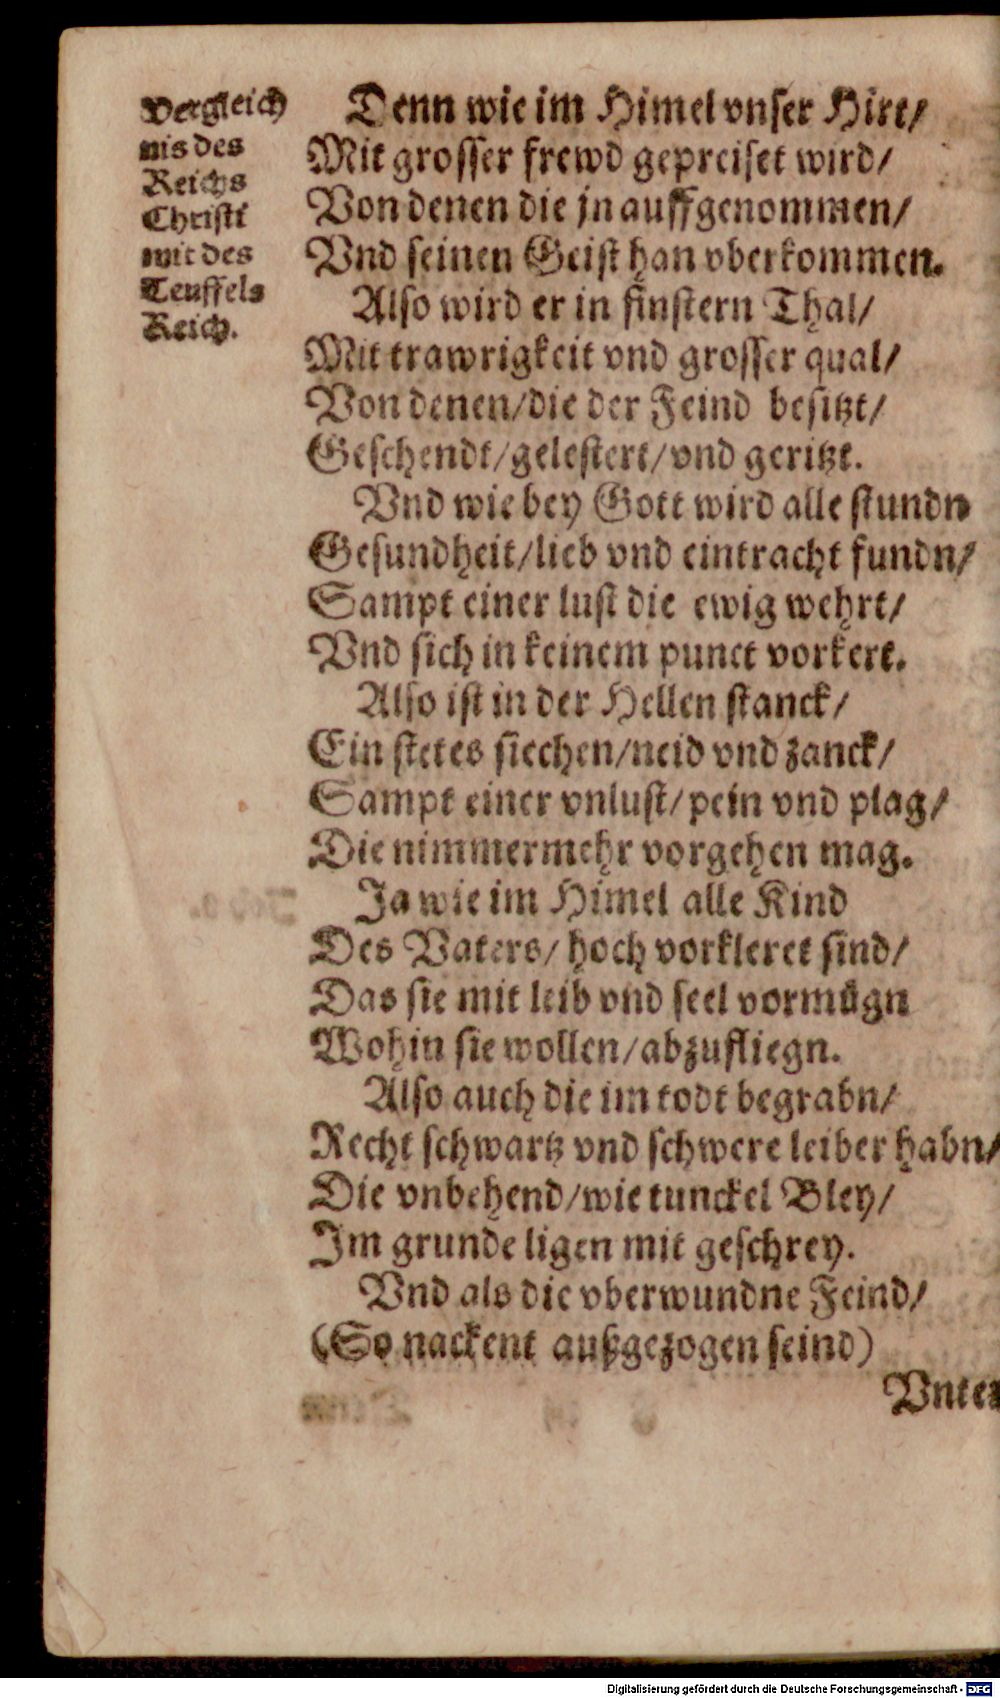 Vergleich
nis des
Reichs
Christi
mit des
Teuffels
Reich.
Denn wie im Himel vnser Hirt/
Mit grosser frewd gepreiset wird/
Von denen die jn auffgenommen/
Vnd seinen Geist han vberkommen.
Also wird er in finstern Thal/
Mit trawrigkeit vnd grosser qual/
Von denen/die der Feind besitzt/
Geschendt/gelestert/vnd geritzt.
Vnd wie bey Gott wird alle stundn
Gesundheit/lieb vnd eintracht fundn/
Sampt einer lust die ewig wehrt/
Vnd sich in keinem punct vorkert.
Also ist in der Hellen stanck/
Ein stetes siechen/neid vnd zanck/
Sampt einer vnlust/pein vnd plag/
Die nimmermehr vorgehen mag.
Ja wie im Himel alle Kind
Des Vaters/ hoch vorkleret sind/
Das sie mit leib vnd seel vormügn
Wohin sie wollen/abzufliegn.
Also auch die im todt begrabn/
Recht schwartz vnd schwere leiber habn/
Die vnbehend/wie tunckel Bley/
Im grunde ligen mit geschrey.
Vnd als die vberwundne Feind/
(So nackent außgezogen seind)
Vnter
Digitalisierung gefördert durch die Deutsche Forschungsgemeinschaft - DFG